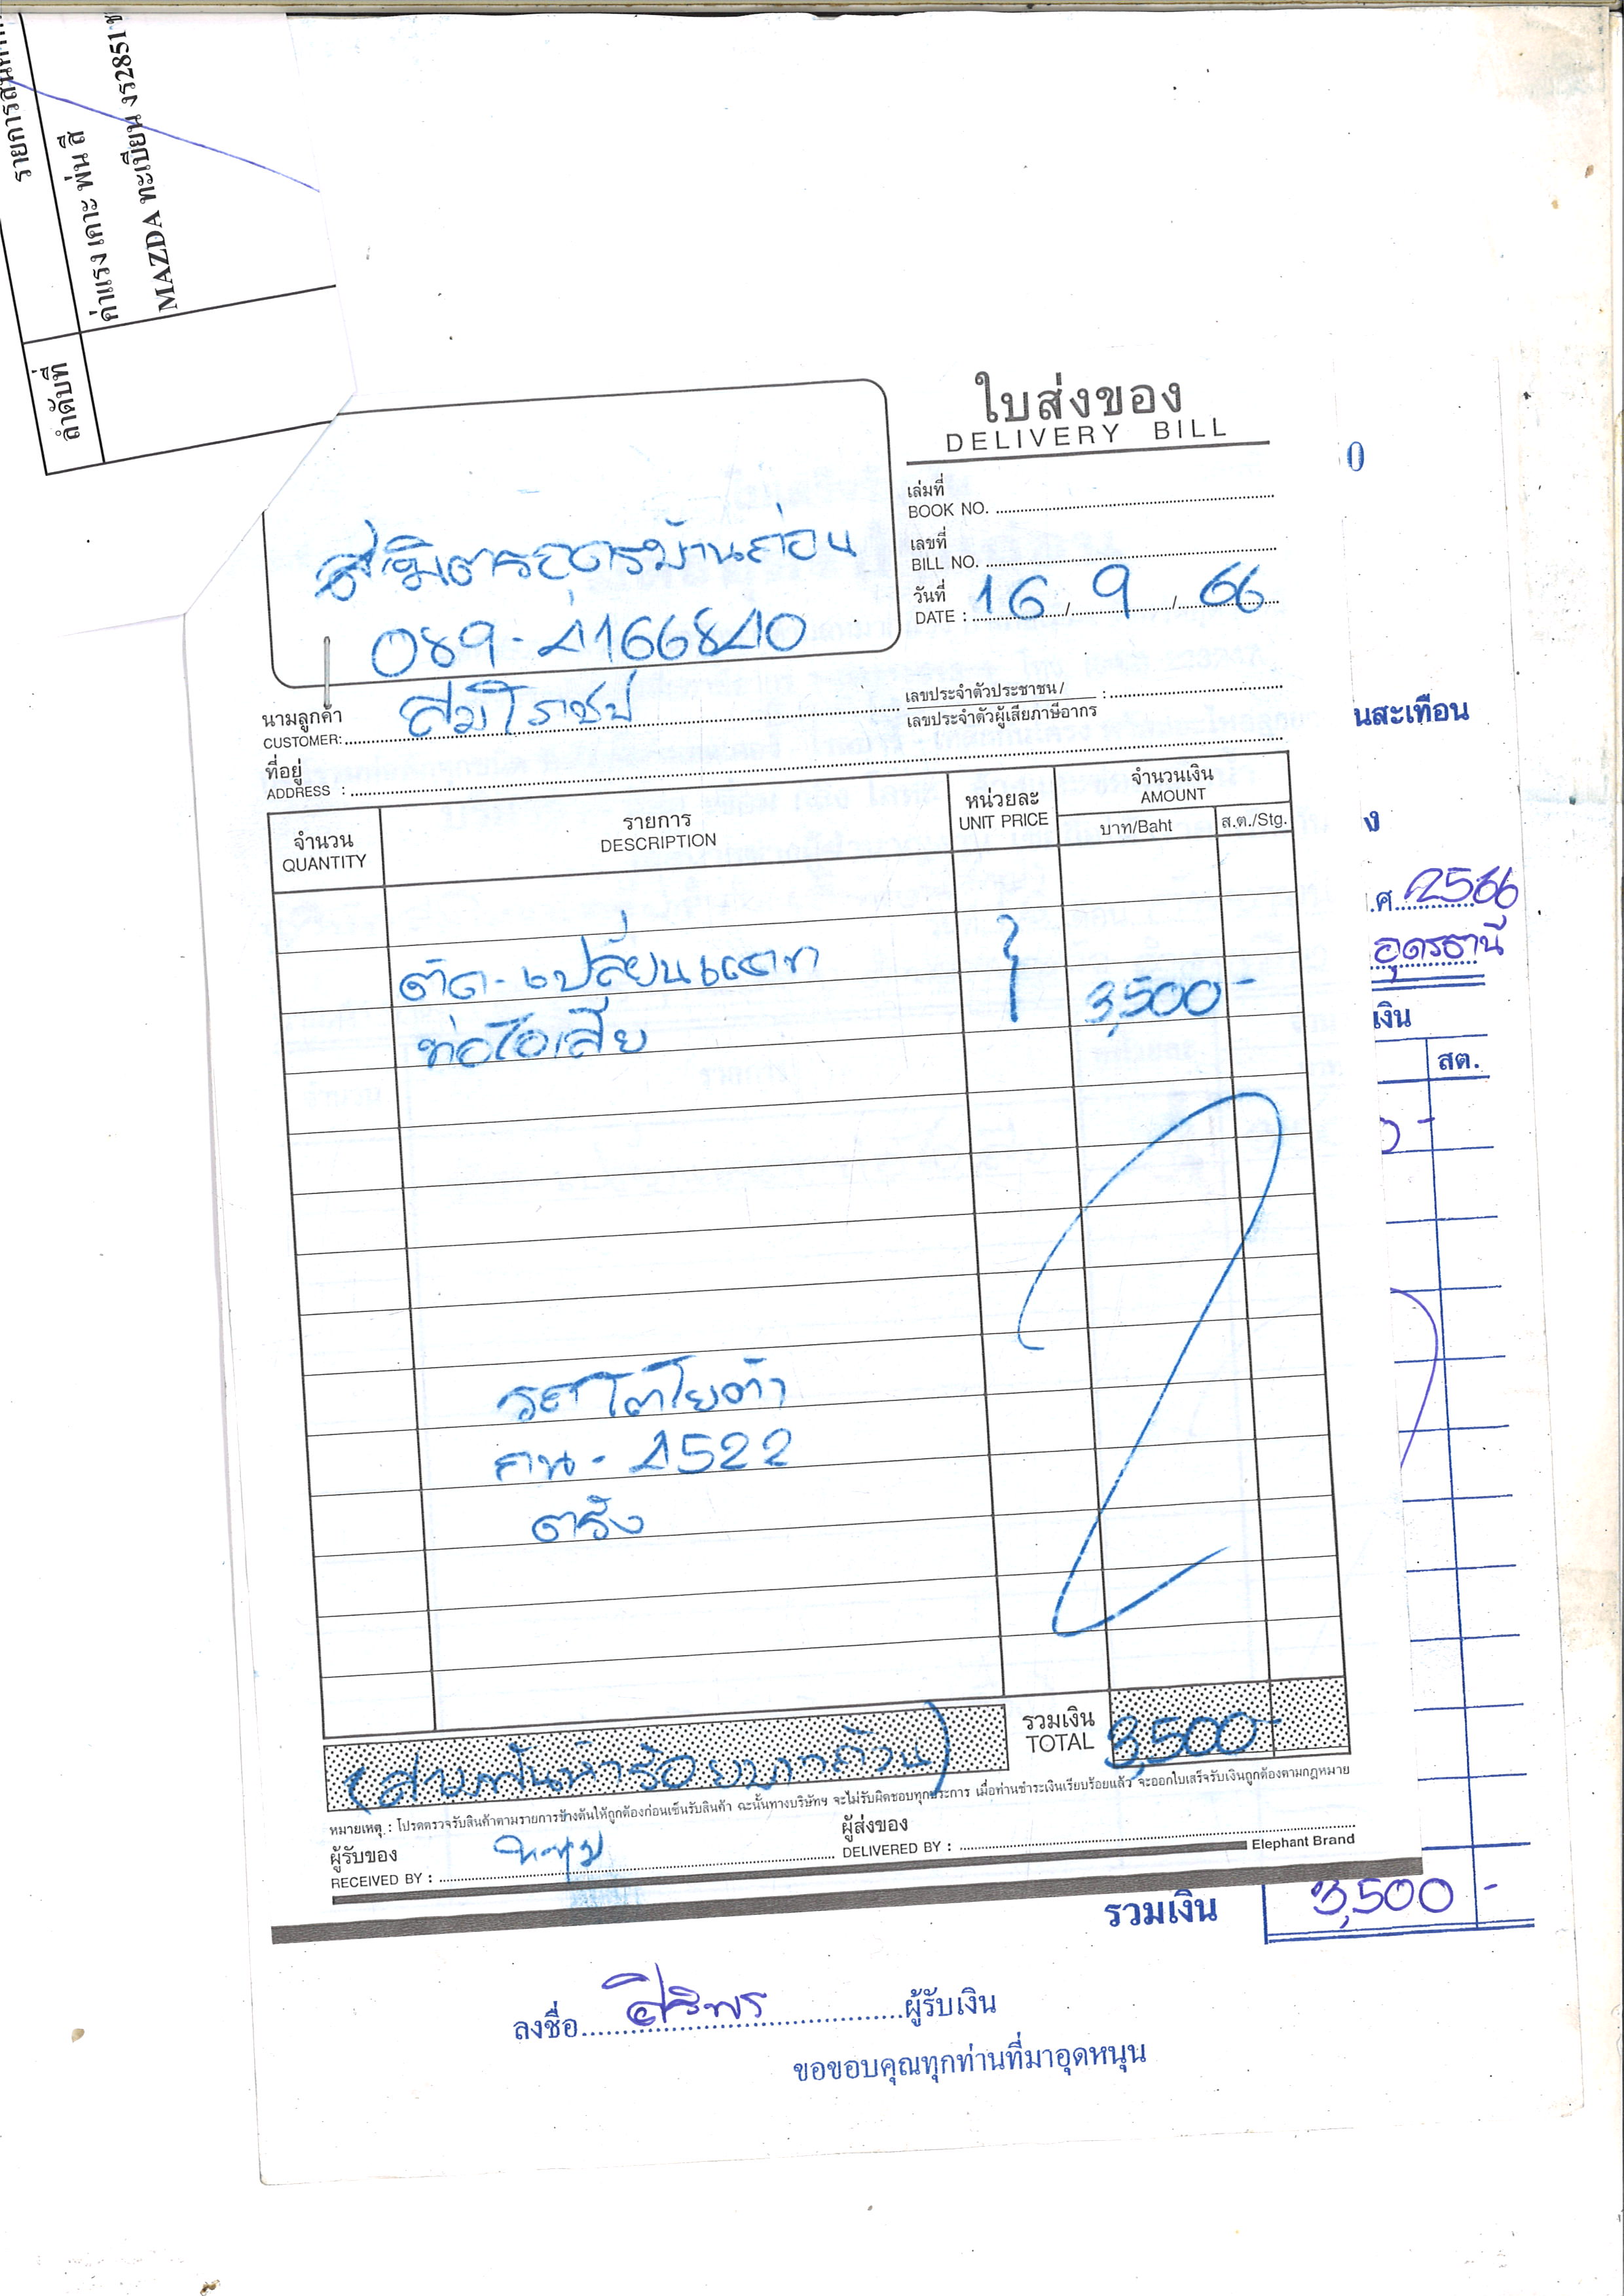 รายการสินค้า
ค่าแรง เคาะ พ่นสี
MAZDA ทะเบียน งร2851
ลำดับที่
ใบส่งของ
DELIVERY BILL
เล่มที่
BOOK NO.
เลขที่
BILL NO.
วันที่
DATE : 16 / 9 / 66
089-4166840
นามลูกค้า
CUSTOMER:
เลขประจำตัวประชาชน/ :
เลขประจำตัวผู้เสียภาษีอากร
ที่อยู่
ADDRESS :
จำนวน
QUANTITY
รายการ
DESCRIPTION
หน่วยละ
UNIT PRICE
จำนวนเงิน
AMOUNT
บาท/Baht
ส.ต./Stg.
ตัด-เปลี่ยน
ท่อไอเสีย
3,500-
รถโตโยต้า
กน-4522
ตรัง
(สามพันห้าร้อยบาทถ้วน)
รวมเงิน
TOTAL
3,500-
หมายเหตุ : โปรดตรวจรับสินค้าตามรายการข้างต้นให้ถูกต้องก่อนเซ็นรับสินค้า ฉะนั้นทางบริษัทฯ จะไม่รับผิดชอบทุกประการ เมื่อท่านชำระเงินเรียบร้อยแล้ว จะออกใบเสร็จรับเงินถูกต้องตามกฎหมาย
ผู้รับของ
RECEIVED BY :
ผู้ส่งของ
DELIVERED BY :
Elephant Brand
0
นสะเทือน
ง
.ศ. 2566
อุดรธานี
เงิน
สต.
รวมเงิน 3,500 -
ลงชื่อ ศิริพร ผู้รับเงิน
ขอขอบคุณทุกท่านที่มาอุดหนุน